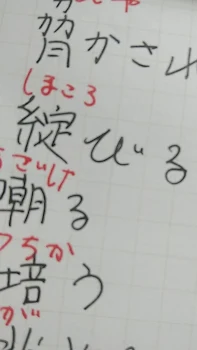 脅かされ
ほころ
綻びる
ざけ
嘲る
つちか
培う